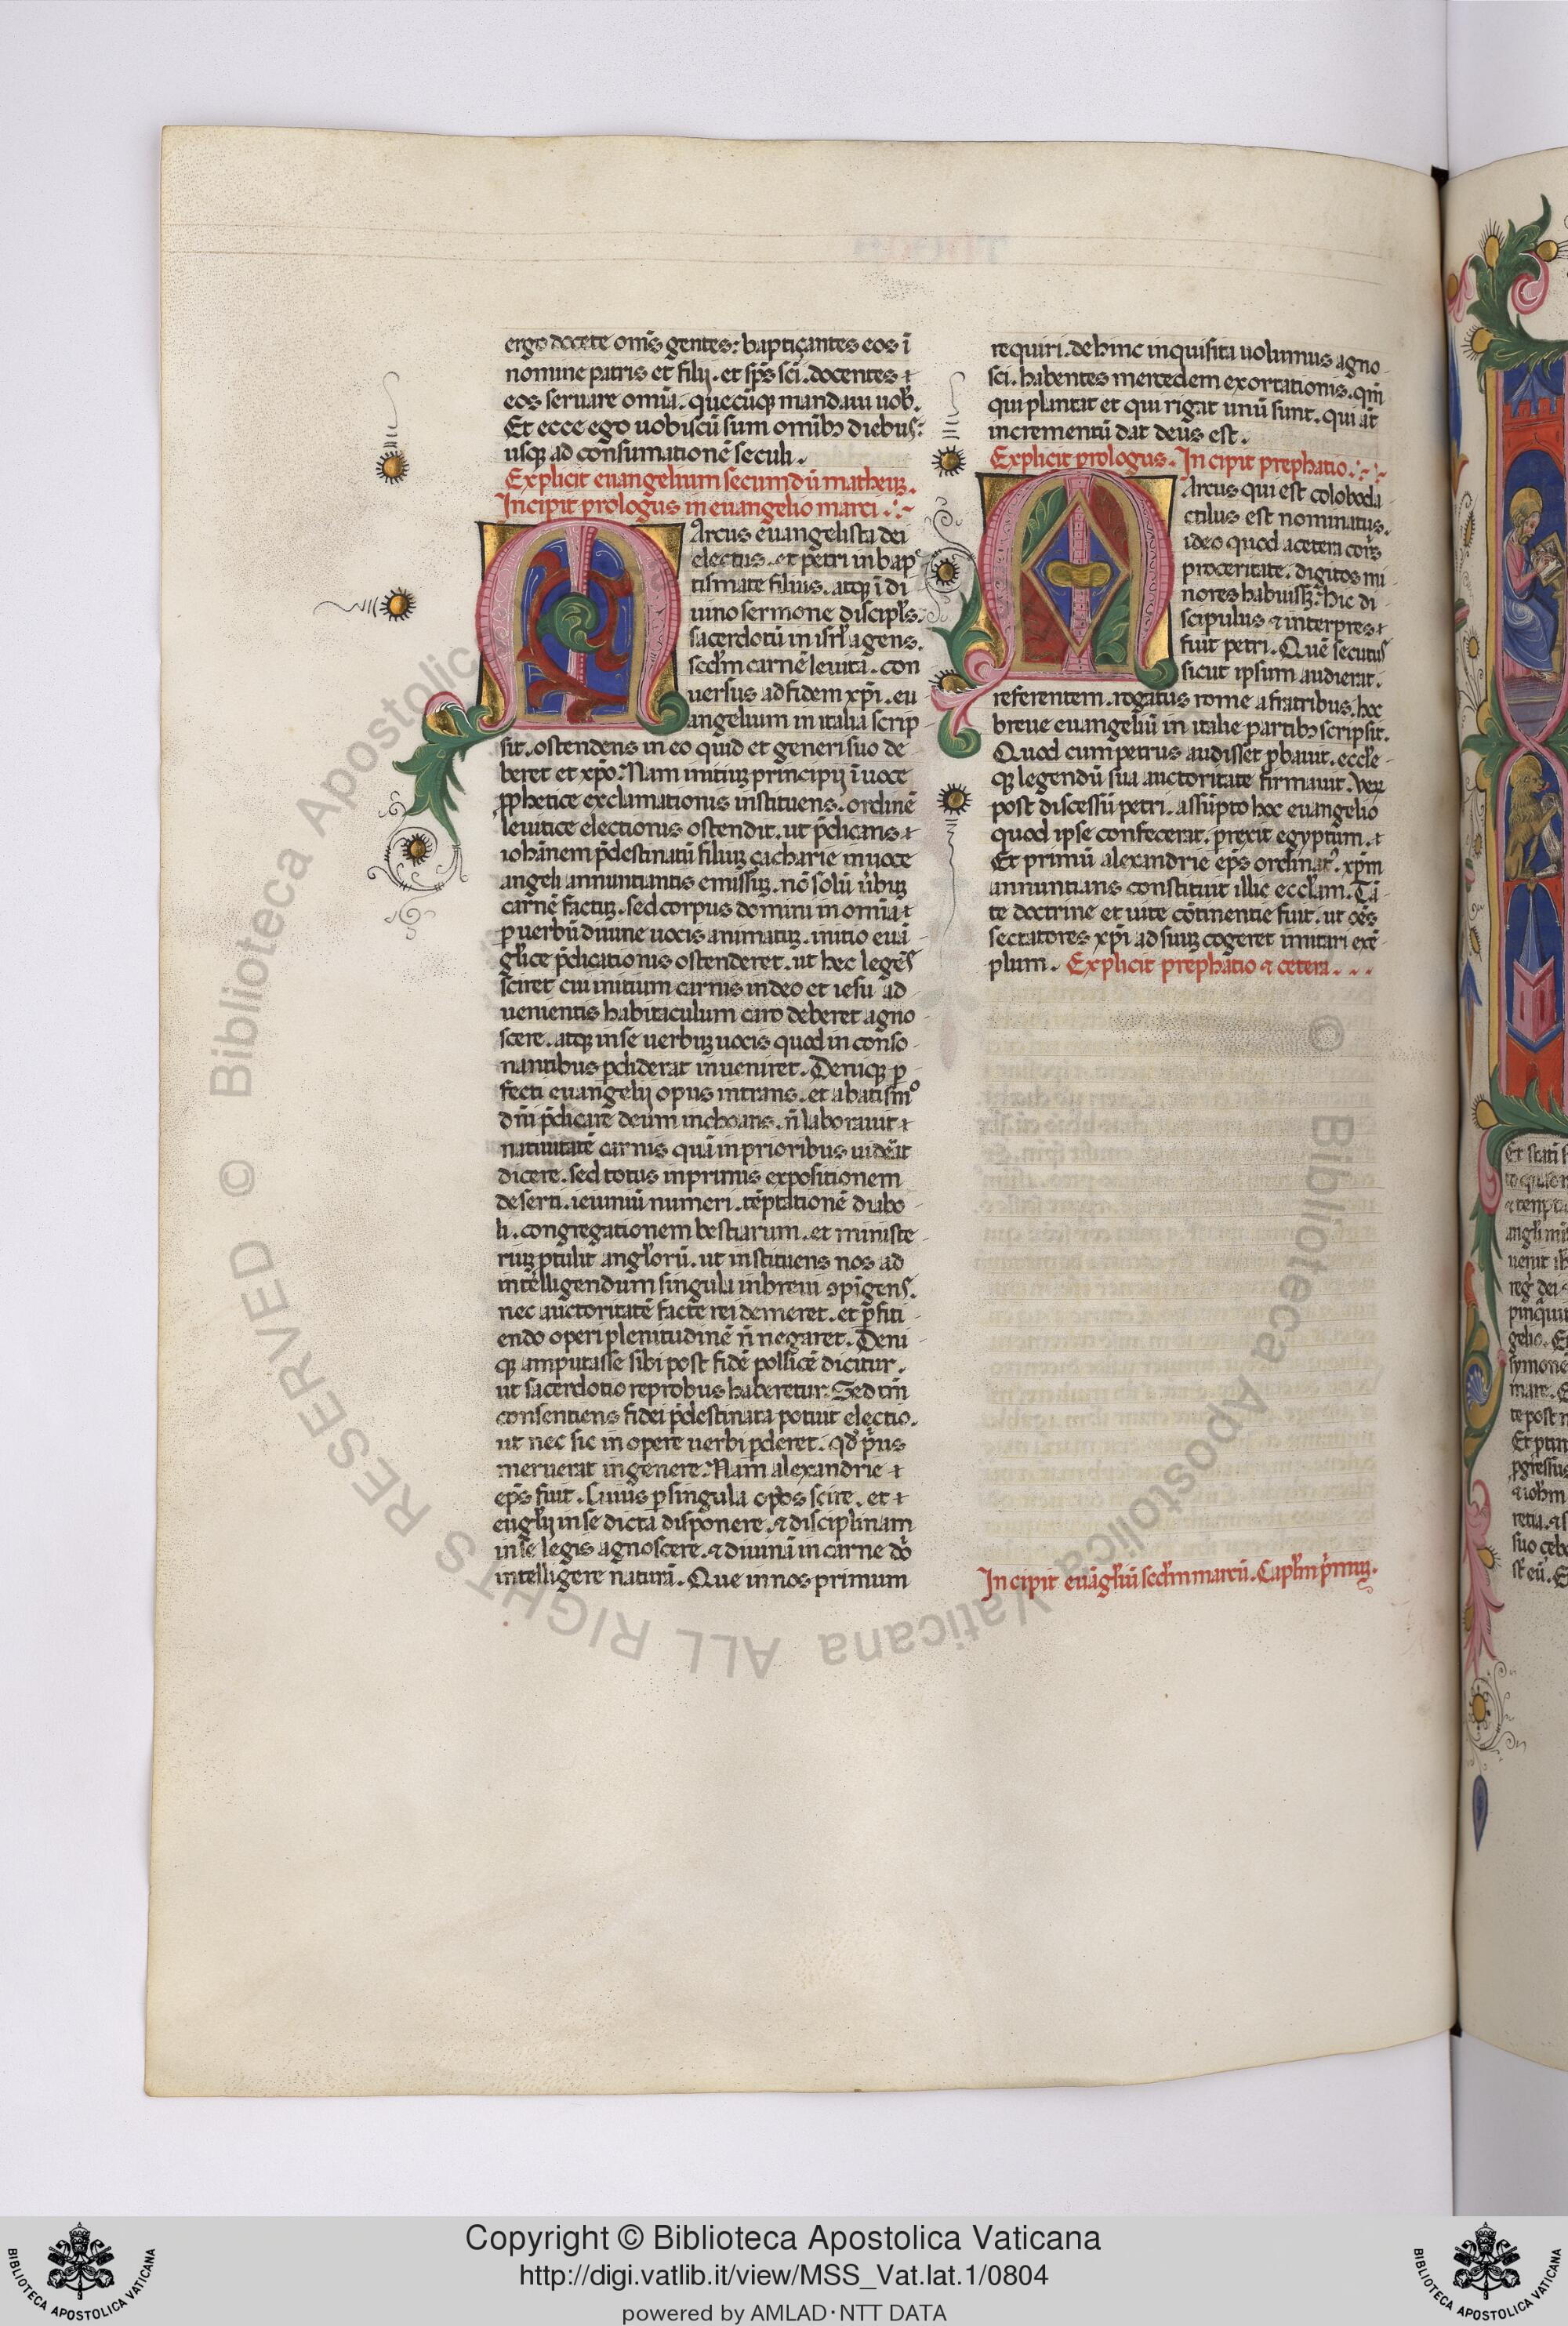 ergo docete om̄s gentes: baptiçantes eos ī
nomine patris et filij. et sp̄s sc̄i. docentes
eos seruare omīa. quecūqꝫ mandaui uob̄.
Et ecce ego uobiscū sum omībꝫ diebus:
usqꝫ ad consumationē seculi.
Explicit euangelium secundū matheuꝫ.
Incipit prologus in euangelio marci.
Marcus euangelista dei
electus. et petri in bap
tismate filius. atqꝫ ī di
uino sermone discipl̄s.
sacerdotū in isrl̄ agens.
sed̄m carnē leuita. con
uersus ad fidem xp̄i. eu
angelium in italia scrip
sit. ostendens in eo quid et generi suo de
beret et xp̄o. Nam initiuꝫ principij ī uoce
ꝓphetice exclamationis instituens. ordinē
leuitice electionis ostendit. ut p̄dicans
iohānem p̄destinatū filiuꝫ çacharie in uoce
angeli annuntiantis emissuꝫ. nō solū u̇biꝫ
carnē factuꝫ. sed corpus domini in omīa
ꝑ uerbū diuine uocis animatuꝫ. initio euā
gl̄ice p̄dicationis ostenderet. ut hec legēs
sciret cui initium carnis in deo et iesu ad
uenientis habitaculum caro deberet agno
scere. atqꝫ in se uerbuꝫ uocis quod in conso
nantibus ꝑdiderat inueniret. Deniqꝫ ꝑ
fecti euangelij opus intrans. et a batismo
dn̄i p̄dicare deum inchoans. n̄ laborauit
natiuitatē carnis quā in prioribus uiderat
dicere. sed totus in primis expositionem
deserti. ieiuniū numeri. tēptationē diabo
li. congregationem bestiarum. et ministe
riuꝫ ꝓtulit angl̄orū. ut instituens nos ad
intelligendum singula in breui ꝯpīgens.
nec auctoritatē facte rei demeret. et ꝑfiti
endo operi plenitudinē n̄ negaret. Deni
qꝫ amputasse sibi post fidē pollicē dicitur.
ut sacerdotio reprobus haberetur. Sed tm̄
consentiens fidei p̄destinata potuit electio.
ut nec sic in opere uerbi ꝑderet. qd̄ prius
meruerat in genere. Nam alexandrie
ep̄s fuit. Cuius ꝑ singula opos scire. et
eugl̄ij in se dicta disponere. ⁊ disciplinam
in se legis agnoscere. ⁊ diuinā in carne do
intelligere naturā. Que in nos primum
requiri. dehinc inquisita uolumus agno
sci. habentes mercedem exortationis. qm̄
qui plantat et qui rigat unū sunt. qui āt
incrementū dat deus est.
Explicit prologus. Incipit prephatio.
Marcus qui est coloboda
ctilus est nominatus.
ideo quod a cetera cor̄s
proceritate. digitos mi
nores habuissꝫ. Hic di
scipulus ⁊ interpres
fuit petri. Quē secutus
sicut ipsum audierat.
referentem. rogatus rome a fratribus. hoc
breue euangeliū in italie partibꝫ scripsit.
Quod cum petrus audisset ꝓbauit. eccl̄e
qꝫ legendū sua auctoritate firmauit. Veꝝ
post discessū petri. assūpto hoc euangelio
quod ipse confecerat. prexit egyptum.
Et primū alexandrie ep̄s ordinat. xp̄m
annuntians constituit illic eccl̄am. Tā
te doctrine et uite cōtinentie fuit. ut oēs
sectatores xp̄i ad suuꝫ cogeret imitari exē
plum. Explicit prephatio ⁊ cetera...
Incipit euāgl̄iū sed̄m marcū. Capl̄m primuꝫ.
Copyright © Biblioteca Apostolica Vaticana
http://digi.vatlib.it/view/MSS_Vat.lat.1/0804
powered by AMLAD·NTT DATA
BIBLIOTECA APOSTOLICA VATICANA
BIBLIOTECA APOSTOLICA VATICANA
© Biblioteca Apostolica Vaticana ALL RIGHTS RESERVED
© Biblioteca Apostolica Vaticana